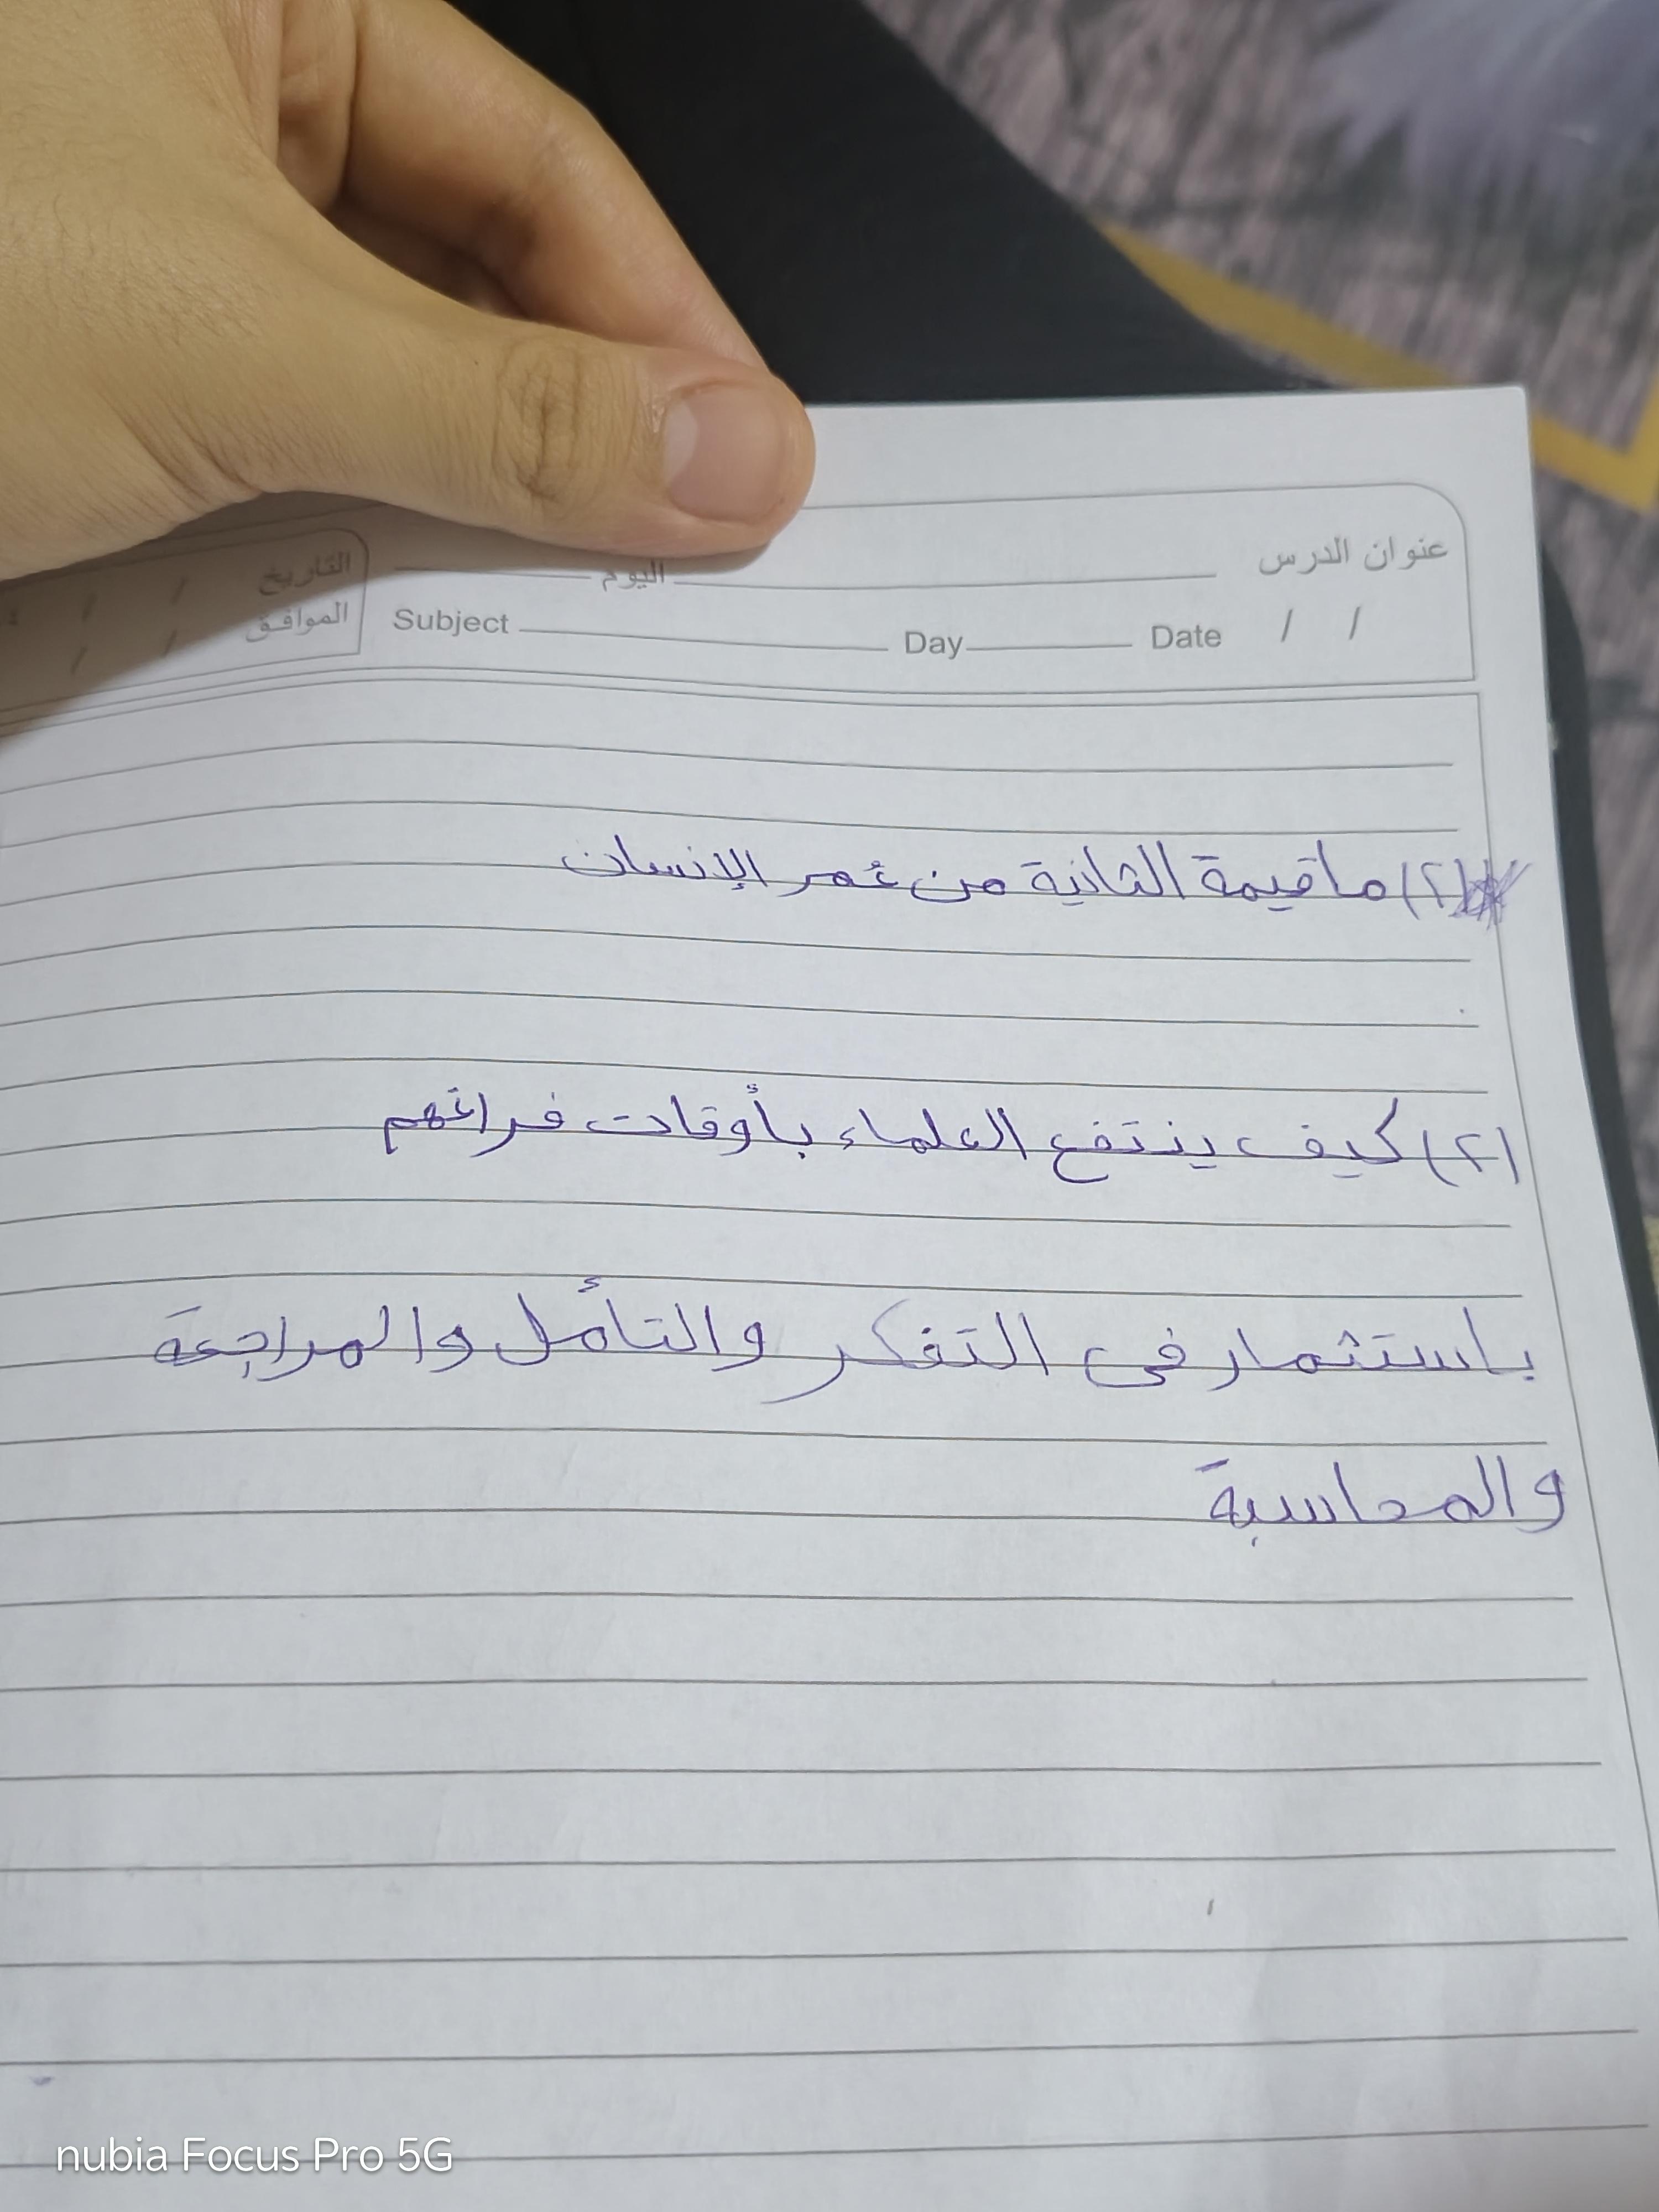 عنوان الدرس اليوم التاريخ / /
Subject Day Date / / الموافق / /
(٢) ما قيمة الثانية من عمر الإنسان
(٢) كيف ينتفع العلماء بأوقات فراغهم
باستثمار في التفكر والتأمل والمراجعة
والمحاسبة
nubia Focus Pro 5G